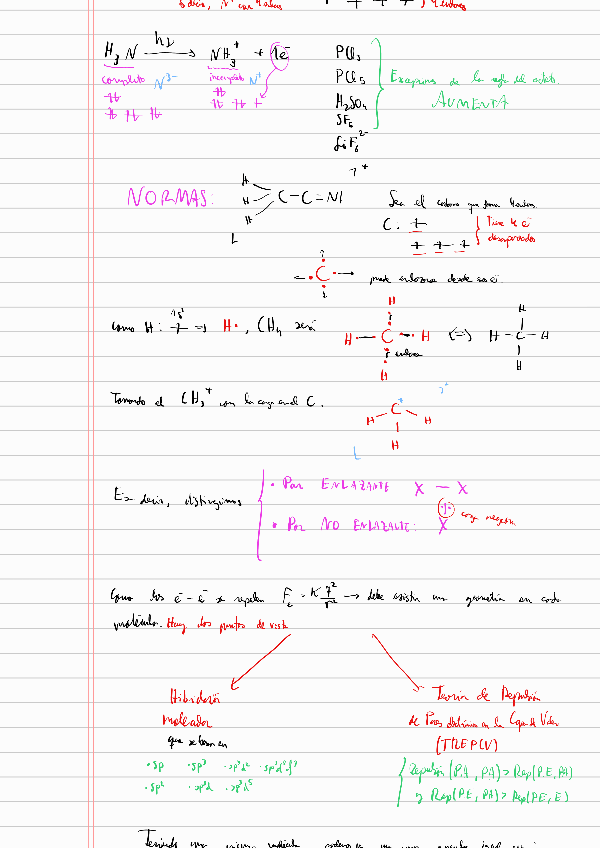 H₃N —hν→ NH₃⁺ + 1e⁻
completo N³⁻ incompleto N⁺
PCl₃
PCl₅
H₂SO₄
SF₆
SiF₆²⁻
Excepciones de la regla del octeto.
AUMENTA
NORMAS:
H
H
H
C – C = N
Sea el carbono que forma 4 enlaces.
C:
Tiene 4 e⁻
desapareados
C → puede enlazarse desde sus e⁻
Como H: 1s¹ ⇒ H•, CH₄ será
H
H C H
enlace
H
⟺
H
H – C – H
H
Tomando el CH₃⁺ con la carga en el C.
C⁺
H H
H
Es decir, distinguimos
• Par ENLAZANTE X — X
• Par NO ENLAZANTE: X carga negativa
Como los e⁻ - e⁻ se repelen Fe = K q²/r² → debe existir una geometría en cada
molécula. Hay dos puntos de vista
Hibridación
molecular
que se basa en
• sp • sp³ • sp³d²
• sp² • sp³d
Teoría de Repulsión
de Pares de electrones en la Capa de Valencia
(TREPCV)
Repulsión (P.A, PA) > Rep(P.E, PA)
y Rep(PE, PA) > Rep(PE, E)